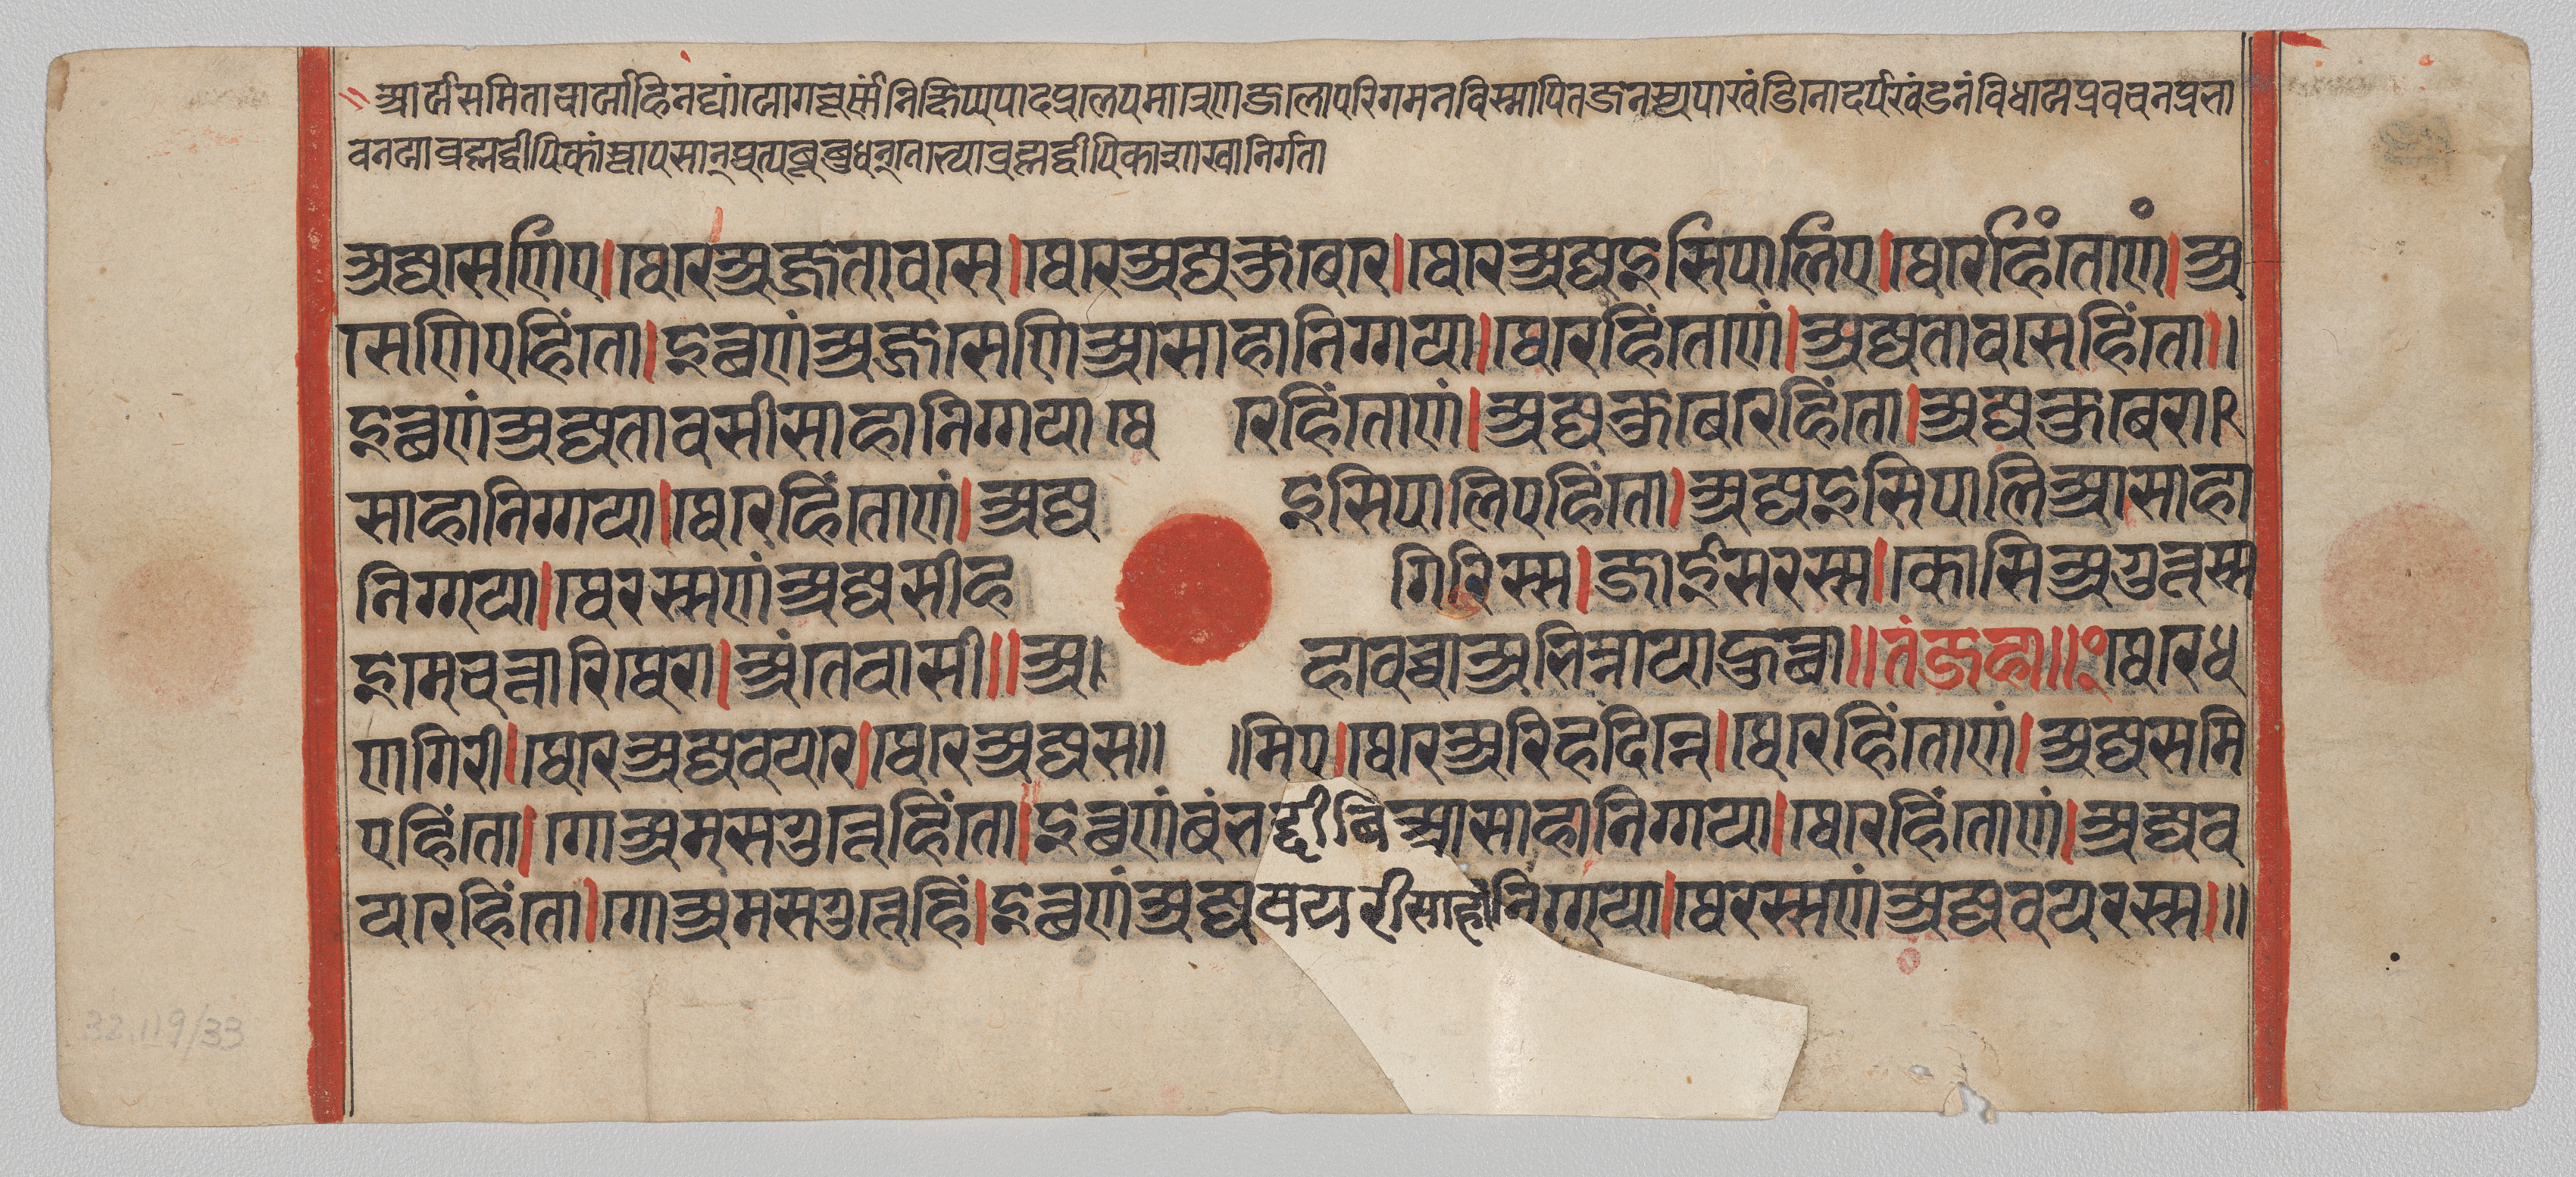 आर्यसमिताचार्यो हि नद्यां योगचूर्णं निक्षिप्य पादप्रलेपमात्रेण जलोपरिगमनविस्मापितजनस्य पाखंडिनो दर्पखंडनं विधाय प्रवचनप्रभा
वनया ब्रह्मद्वीपिकांस्तापसान् प्रत्यबूबुधत् तेभ्यो ब्रह्मद्वीपिका शाखा निर्गता
अज्जसेणिए । थेरे अज्जतावसे । थेरे अज्जकुबेरे । थेरे अज्जइसिपालिए । थेरेहिंतो णं । अज्ज
सेणिएहिंतो । इत्थ णं अज्जसेणिआ साहा निग्गया । थेरेहिंतो णं । अज्जतावसेहिंतो ।।
इत्थ णं अज्जतावसी साहा निग्गया थेरेहिंतो णं । अज्जकुबेरेहिंतो । अज्जकुबेरा
साहा निग्गया । थेरेहिंतो णं । अज्जइसिपालिएहिंतो । अज्जइसिपालिआ साहा
निग्गया । थेरस्स णं अज्जसीहगिरिस्स । जाईसरस्स । कोसिअगुत्तस्स
इमे चत्तारि थेरा । अंतेवासी ॥ अहावच्चा अभिन्नाया हुत्था ॥ तं जहा ॥ थेरे ध
णगिरी । थेरे अज्जवयरे । थेरे अज्जस॥ ।मिए । थेरे अरिहदिन्ने । थेरेहिंतो णं । अज्जसमि
एहिंतो । गोअमसगुत्तेहिंतो । इत्थ णं बंभद्दीविआ साहा निग्गया । थेरेहिंतो णं । अज्जव
यरेहिंतो । गोअमसगुत्तेहिं । इत्थ णं अज्जवयरी साहा निग्गया । थेरस्स णं अज्जवयरस्स ।॥
32.119/33